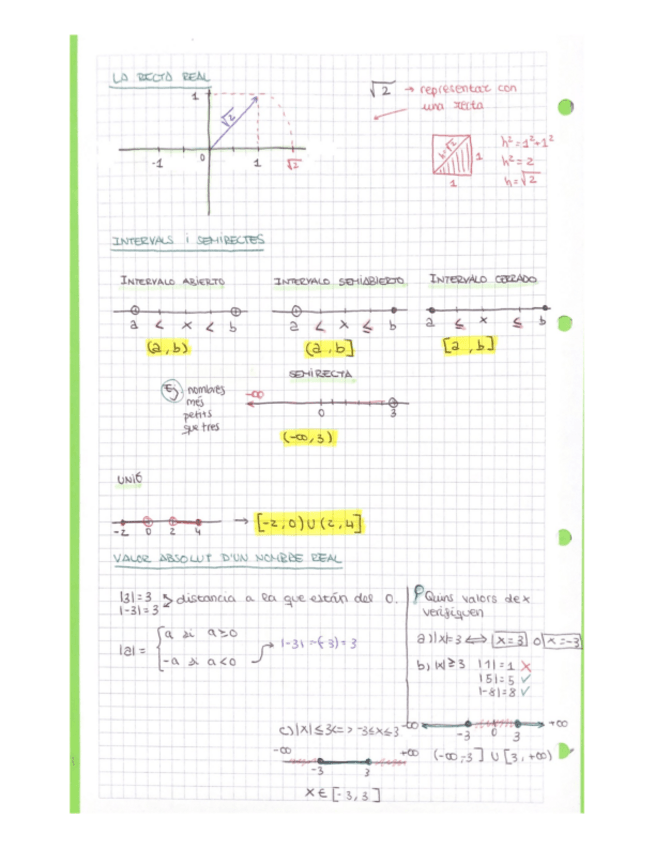 LA RECTA REAL
√2 → representar con
una recta
1
√2
-1 0 1 √2
h=√2
1
1
h²=1²+1²
h²=2
h=√2
INTERVALS i SEMIRECTES
INTERVALO ABIERTO
a < x < b
(a,b)
INTERVALO SEMIABIERTO
a < x ≤ b
(a,b]
INTERVALO CERRADO
a ≤ x ≤ b
[a,b]
SEMIRECTA
nombres
més
petits
que tres
-∞
0 3
(-∞,3)
UNIÓ
-2 0 2 4
→ [-2,0)∪(2,4]
VALOR ABSOLUT D'UN NOMBRE REAL
|3|=3
|-3|=3
distancia a la que están del 0.
|a|=
a si a≥0
-a si a<0
|-3|=-(-3)=3
Quins valors de x
verifiquen
a)|x|=3 ⟺ x=3 o x=-3
b)|x|≥3 |1|=1 ✗
|5|=5 ✓
|-8|=8 ✓
-∞ +∞
-3 0 3
(-∞,-3] ∪ [3,+∞)
c)|x|≤3<=> -3≤x≤3
-∞ +∞
-3 3
x∈[-3,3]